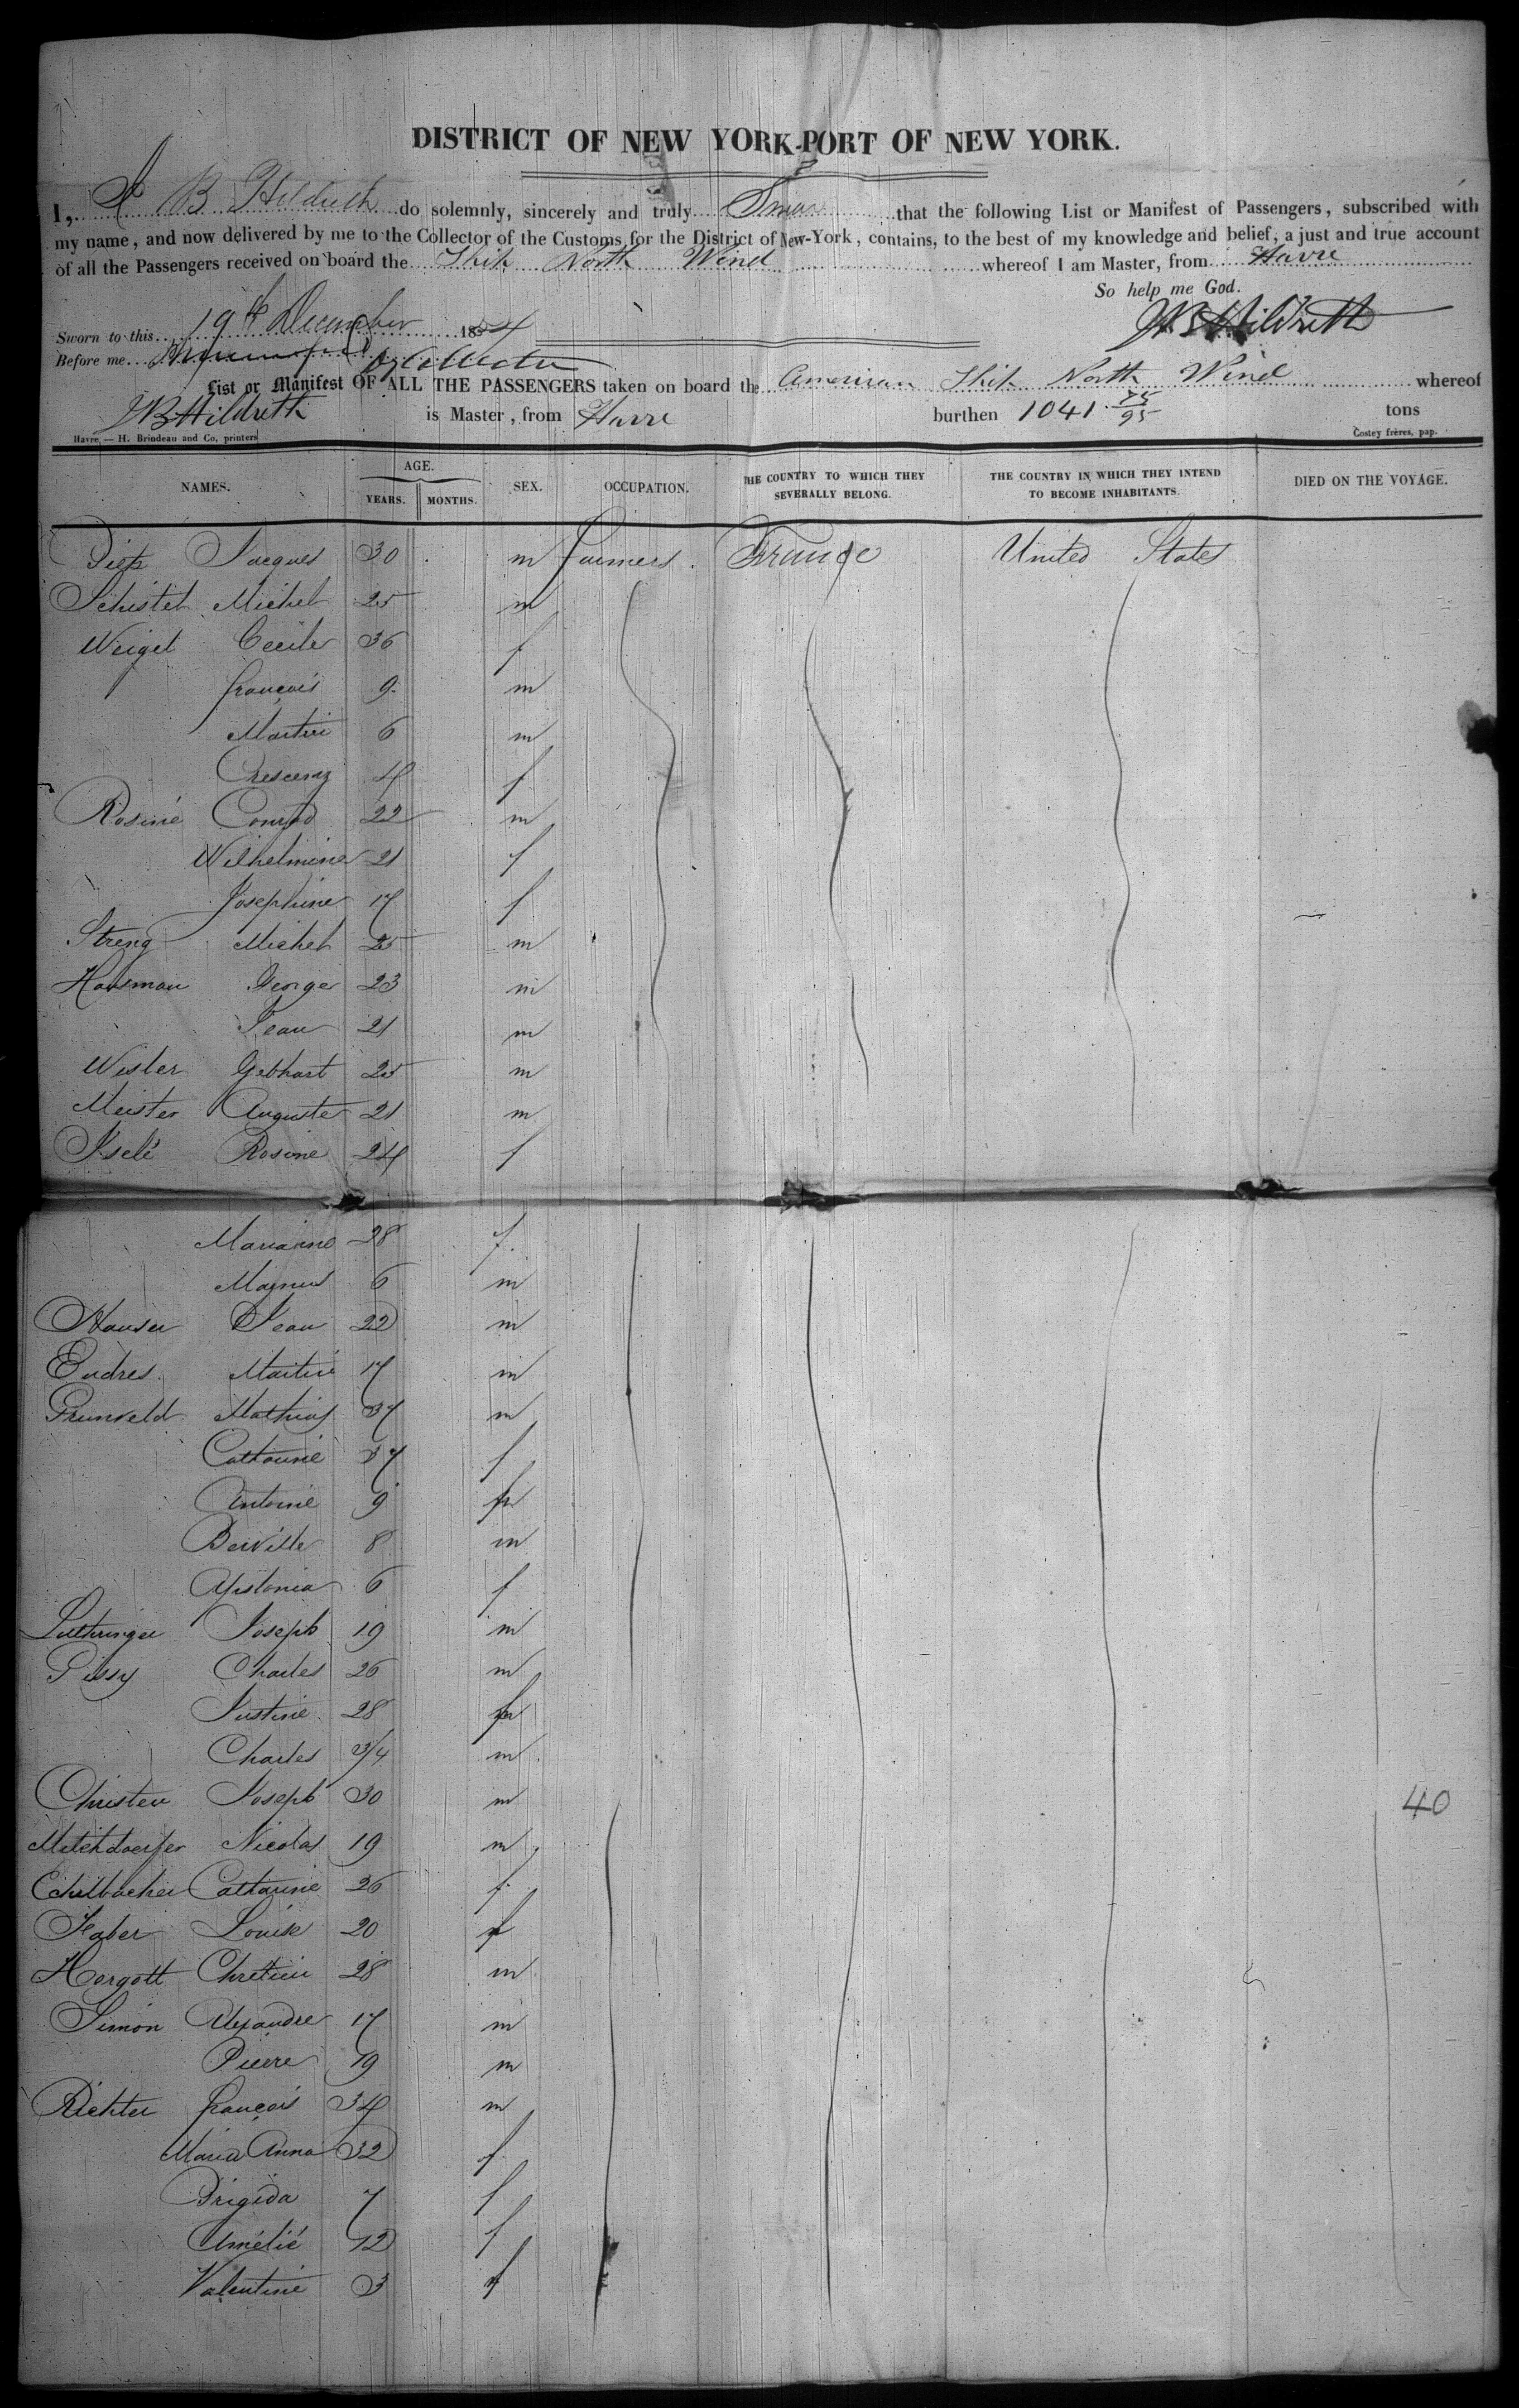 DISTRICT OF NEW YORK-PORT OF NEW YORK.
I, J B Hildreth do solemnly, sincerely and truly Swear that the following List or Manifest of Passengers, subscribed with
my name, and now delivered by me to the Collector of the Customs for the District of New-York, contains, to the best of my knowledge and belief, a just and true account
of all the Passengers received on board the Ship North Wind whereof I am Master, from Havre
So help me God.
Sworn to this 19th December 1854
JB Hildreth
Before me Collector
List or Manifest OF ALL THE PASSENGERS taken on board the American Ship North Wind whereof
JB Hildreth is Master, from Havre burthen 1041 75/95 tons
Havre, — H. Brindeau and Co, printers
Costey frères, pap.
NAMES. AGE. YEARS. MONTHS. SEX. OCCUPATION. THE COUNTRY TO WHICH THEY SEVERALLY BELONG. THE COUNTRY IN WHICH THEY INTEND TO BECOME INHABITANTS. DIED ON THE VOYAGE.
Jacques 30 m farmers. France United States
Schistel Michel 25 m
Weigel Cecile 36 f
françois 9 m
Martin 6 m
Crescenz 4 f
Rosiné Conrad 22 m
Wilhelmine 21 f
Josephine 17 f
Streng Michel 25 m
Hausman George 23 m
Jean 21 m
Wisler Gebhart 25 m
Meister Auguste 21 m
Iselé Rosine 24 f
Marianne 28 f.
Magnus 6 m
Hauser Jean 22 m
Endres. Martin 17 m
Grunveld Mathias 37 m
Catharine 37 f
Antoine 9 m
8 m
6 f
Luthringer Joseph 19 m
Gissy Charles 26 m
Justine. 28 f
Charles 3/4 m
Christen Joseph 30 m
Nicolas 19 m
Catharine 26 f.
Faber Louise 20 f
Horgott Chretien 28 m
Simon Alexandre 17 m
Pierre 19 m
Richter françois 34 m
Maria Anna 32 f
Brigida 7 f
Amélié 12 f
Valentine 3 f
40